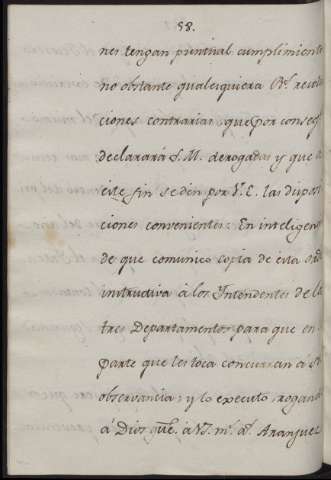 88.
nes tengan puntual cumplimiento
no obstante qualesquiera Rs. resolu
ciones contrarias, que por conseqͣ
declarará S.M. derogadas y que a
este fin se den por V.E. las dispos
ciones convenientes: En inteligen
de que comunico copia de esta ord
instructiva à los Intendentes de lo
tres Departamentos para que en l
parte que les toca concurran à s
observancia; y lo executo rogand
à Dios gũe. à V.E. ms. as. Aranjuez